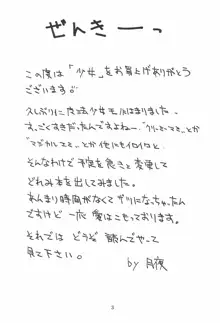 ぜんきーっ
この度は「少女」をお買上げありがとう
ございます
久しぶりに魔法少女モノにはまりました。
すっごくすきだったんですよねー、"クリーミーマミ"とか
"マジカルエミ"とか他にもイロイロと
そんなわけで予定を急きょ変更して
どれみ本を出してみました。
あんまり時間がなくてザツになっちゃったん
ですけど一応愛はこもっております。
それではどうぞ読んでやって
見て下さい。
by 月夜
3